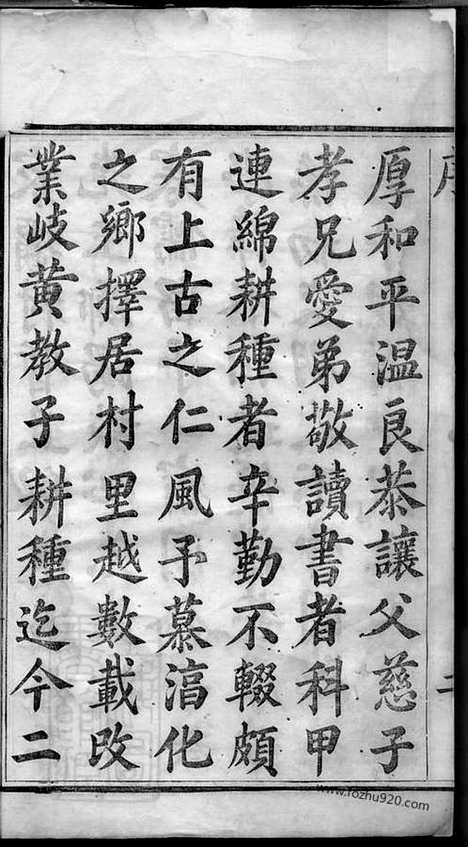 序
二
厚和平温良恭讓父慈子
孝兄愛弟敬讀書者科甲
連綿耕種者辛勤不輟頗
有上古之仁風予慕滈化
之鄉擇居村里越數載改
業岐黄教子耕種迄今二
www.rozhu920.com